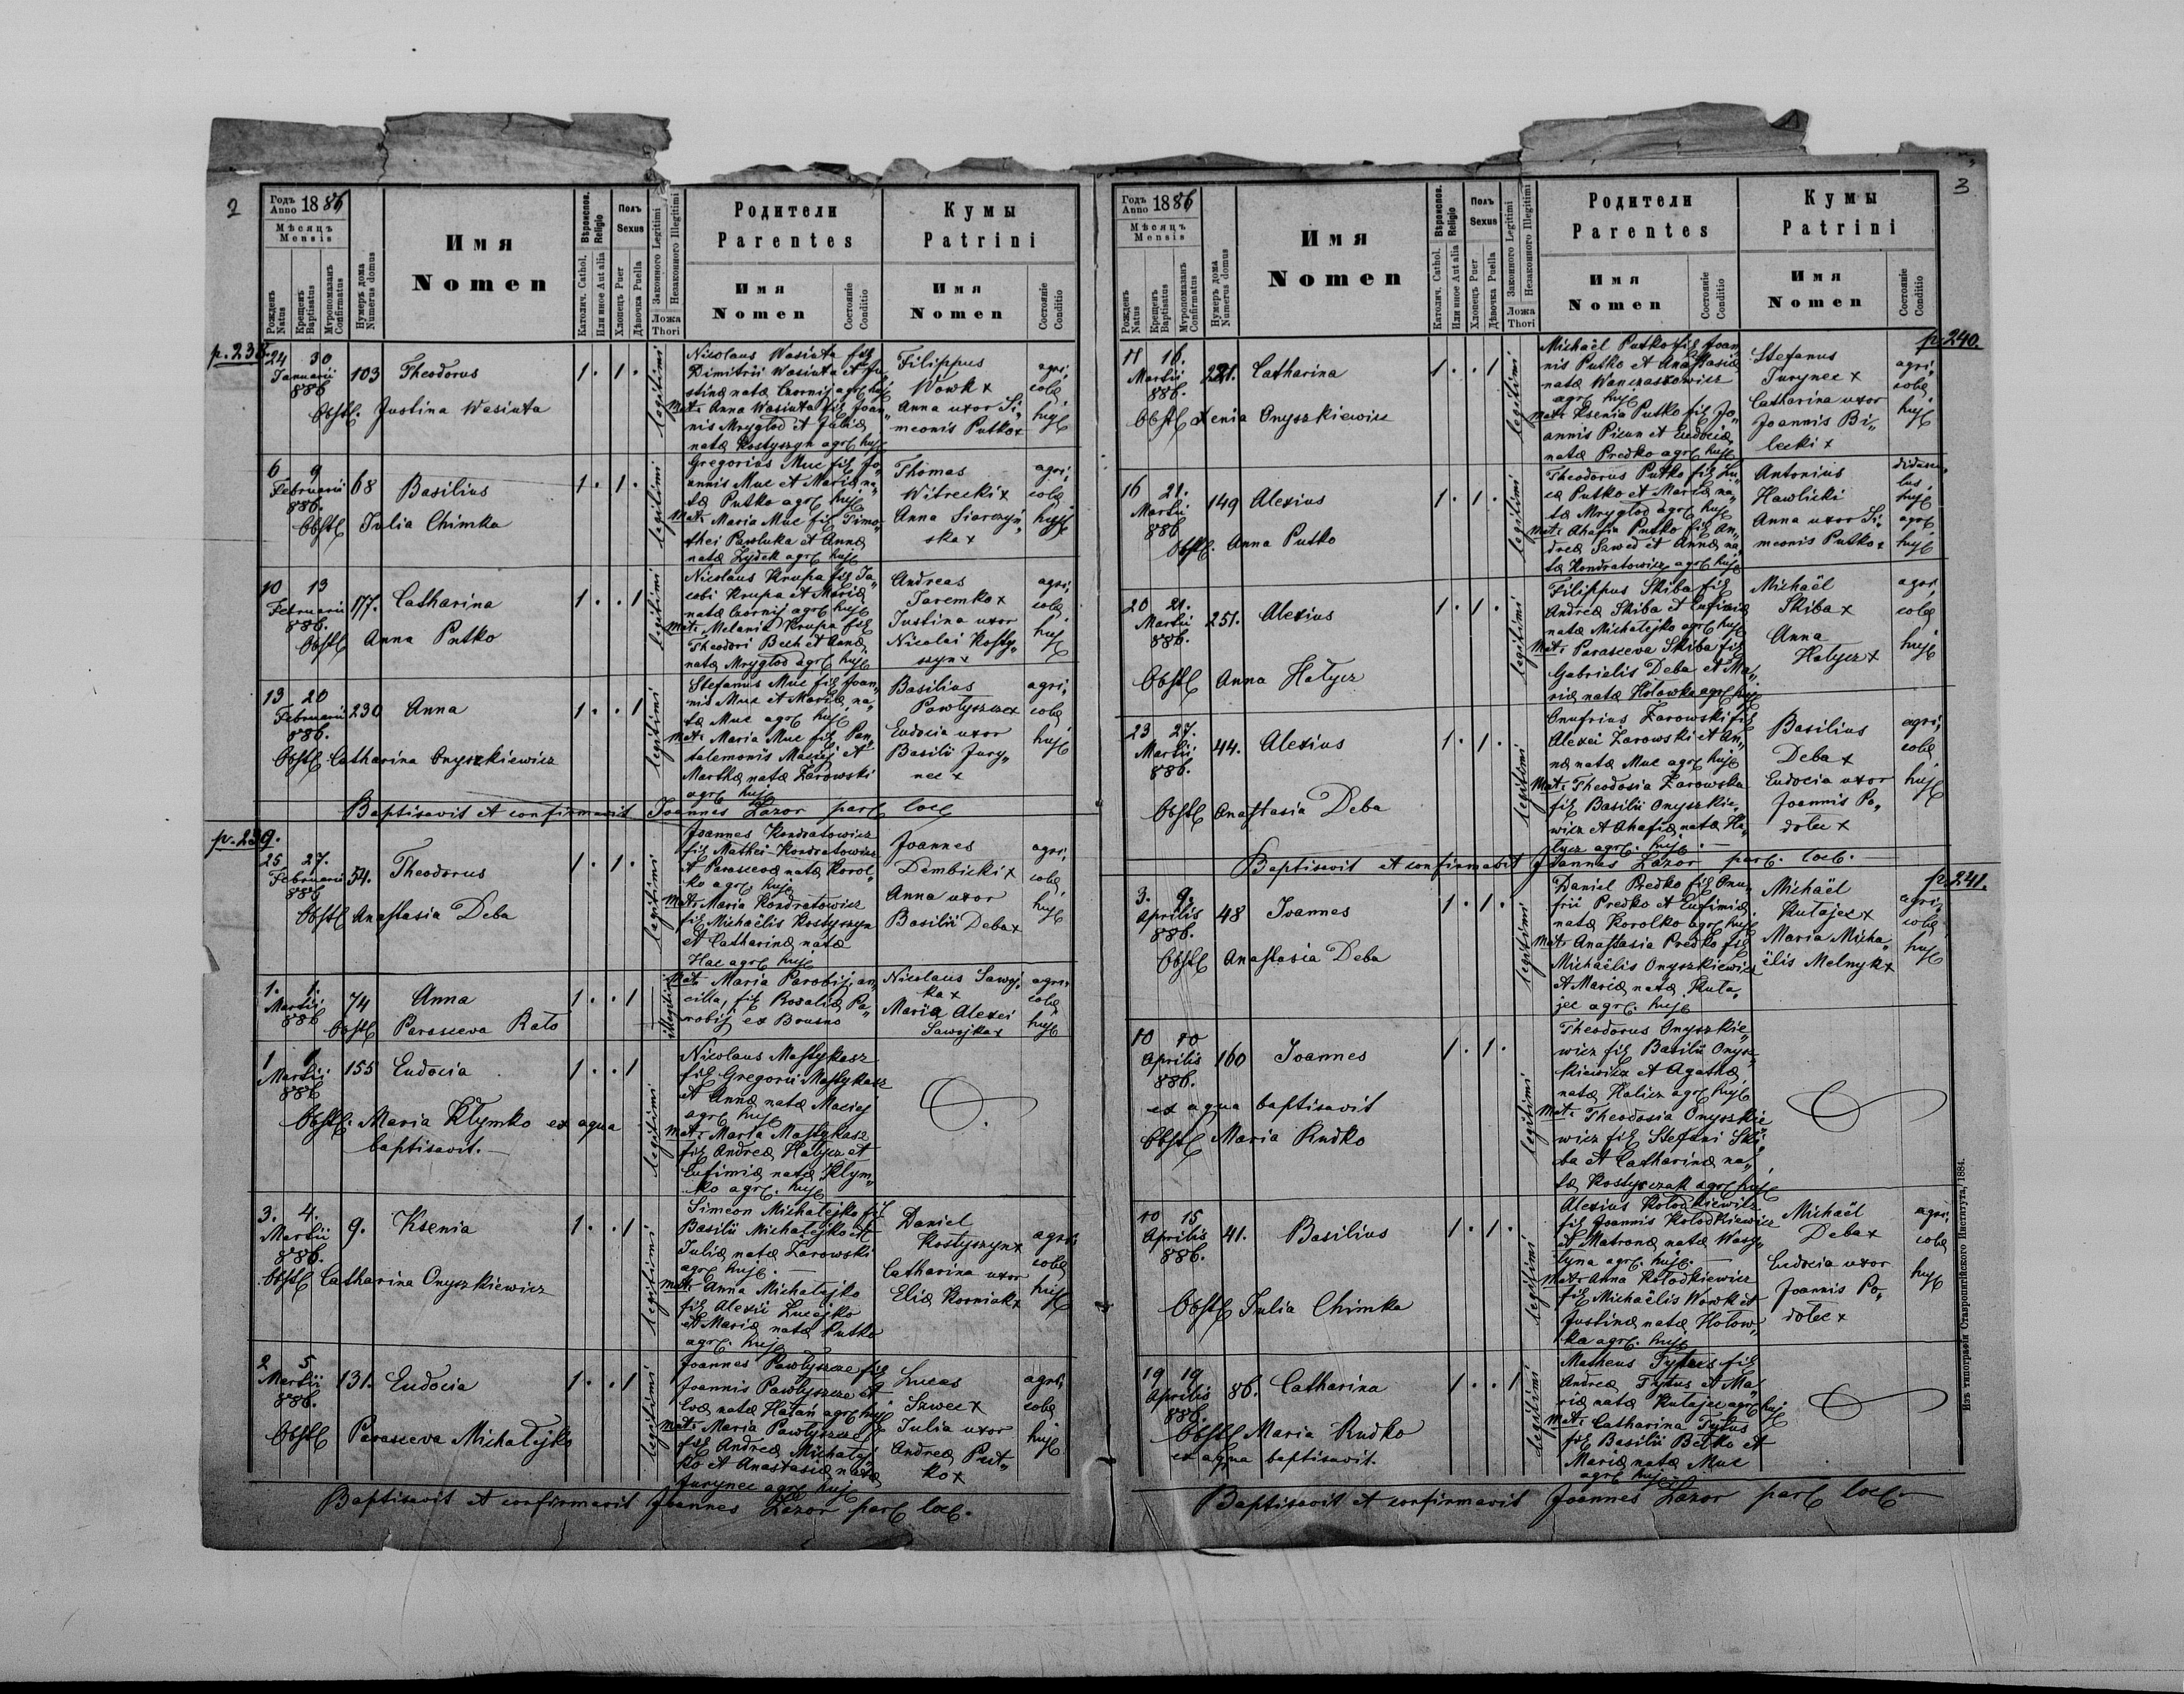 2
Годъ Anno 1886
Мѣсяцъ
Mensis
Рожденъ Natus
Крещенъ Baptisatus
Мνропомазанъ Confirmatus
Нумеръ дома Numerus domus
Имя
Nomen
Вѣроиспов. Religio
Католич. Cathol.
Или иное Aut alia
Полъ Sexus
Хлопецъ Puer
Дѣвочка Puella
Законного Legitimi
Незаконного Illegitimi
Ложа Thori
Родители
Parentes
Имя
Nomen
Состояніе Conditio
Кумы
Patrini
Имя
Nomen
Состояніе Conditio
p. 238.
24 30
Januarii
886
103 Theodorus 1. 1. legitimi
Obst. Justina Wasiuta
Nicolaus Wasiuta fil
Dimitrii Wasiuta et Ju„
stinæ natæ Czornij agr. huj
Mat: Anna Wasiuta fil Joan„
nis Mryglod et Juliæ
natæ Kostyszyn agr. huj
Filippus
Wowk x
Anna uxor Si„
meonis Putko x
agri,
colæ
huj
6 9
Februarii
886.
68 Basilius 1. 1. legitimi
Obst. Julia Chimka
Gregorius Muc fil Jo„
annis Muc et Mariæ na„
tæ Putko agr. huj
Mat: Maria Muc fil Timo„
thei Pawluka et Annæ
natæ Zydek agr. huj
Thomas
Witrecki x
Anna Siarczyń„
ska x
agri,
colæ
huj
10 13
Februarii
886.
177. Catharina 1. . 1 legitimi
Obst. Anna Putko
Nicolaus Krupa fil Ja„
cobi Krupa et Mariæ
natæ Czornij agr. huj
Mat: Melania Krupa fil
Theodori Bech et Annæ
natæ Mryglod agr. huj
Andreas
Jaremko x
Justina uxor
Nicolai Kosty„
szyn x
agri,
colæ
huj
13 20
Februarii
886.
230 Anna 1. . 1 legitimi
Obst. Catharina Onyszkiewicz
Stefanus Muc fil Joan„
nis Muc et Mariæ, na„
tæ Muc agr. huj
Mat: Maria Muc fil Pan„
talemonis Maciej et
Marthæ natæ Zarowski
agr. huj
Basilius
Pawłyszcze x
Eudocia uxor
Basilii Jury„
nec x
agri,
colæ
huj
Baptisavit et confirmavit Joannes Lazor par. loc.
p. 239.
25 27.
Februarii
886
54. Theodorus 1. 1. legitimi
Obst. Anastasia Deba
Joannes Kondratowicz
fil Mathei Kondratowicz
et Parascevæ natæ Korol„
ko agr. huj
Mat: Maria Kondratowicz
fil Michaëlis Kostyszyn
et Catharinæ natæ
Hac agr. huj
Joannes
Dembicki x
Anna uxor
Basilii Deba x
agri,
colæ
huj
1. 1.
Martii
886
74 Anna 1. . 1 illegitimi
Obst. Parasceva Rato
Mat: Maria Parobij, an„
cilla, fil Rosaliæ Pa„
robij ex Brusno
Nicolaus Sawoj„
ka x
Maria Alexei
Sawojka x
agri,
colæ
huj
1 1
Martii
886
155 Eudocia 1. . 1 legitimi
Obst. Maria Klymko ex aqua
baptisavit.
Nicolaus Mastykasz
fil Gregorii Mastykasz
et Annæ natæ Maciej
agr. huj
Mat: Marta Mastykasz
fil Andreæ Hałycz et
Eufimiæ natæ Klym„
ko agr. huj
3. 4.
Martii
886.
9. Ksenia 1. . 1 legitimi
Obst. Catharina Onyszkiewicz
Simeon Michałejko fil
Basilii Michałejko et
Juliæ natæ Zarowski
agr. huj.
Mat: Anna Michałejko
fil Alexii Lucejko
et Mariæ natæ Putko
agr. huj
Daniel
Kostyszyn x
Catharina uxor
Eliæ Korniak x
agri,
colæ
huj
2 5
Martii
886.
131. Eudocia 1. . 1 legitimi
Obst. Parasceva Michałejko
Joannes Pawłyszcze fil
Joannis Pawłyszcze et
Evæ natæ Hałań agr. huj
Mat: Maria Pawłyszcze
fil Andreæ Michałej„
ko et Anastasiæ natæ
Jurynec agr. huj
Lucas
Szwec x
Julia uxor
Andreæ Put„
ko x
agri,
colæ
huj
Baptisavit et confirmavit Joannes Lazor par. loc.
3
Годъ Anno 1886
Мѣсяцъ
Mensis
Рожденъ Natus
Крещенъ Baptisatus
Мνропомазанъ Confirmatus
Нумеръ дома Numerus domus
Имя
Nomen
Вѣроиспов. Religio
Католич. Cathol.
Или иное Aut alia
Полъ Sexus
Хлопецъ Puer
Дѣвочка Puella
Законного Legitimi
Незаконного Illegitimi
Ложа Thori
Родители
Parentes
Имя
Nomen
Состояніе Conditio
Кумы
Patrini
Имя
Nomen
Состояніе Conditio
p. 240.
11 16.
Martii
886.
221. Catharina 1. . 1 legitimi
Obst. Xenia Onyszkiewicz
Michaël Putko fil Joan„
nis Putko et Anastasiæ
natæ Wanczaszkowicz
agr. huj
Mat: Ksenia Putko fil Jo„
annis Picun et Eudociæ
natæ Predko agr. huj
Stefanus
Jurynec x
Catharina uxor
Joannis Bi„
lecki x
agri,
colæ
huj
16 21.
Martii
886
149 Alexius 1. 1. legitimi
Obst. Anna Putko
Theodorus Putko fil Lu„
cæ Putko et Mariæ na„
tæ Mryglod agr. huj
Mat: Ahafia Putko fil An„
dreæ Szwed et Annæ na„
tæ Kondratowicz agr. huj
Antonius
Hawlicki
Anna uxor Si„
meonis Putko x
didasca„
lus,
huj
agr.
huj
20 21.
Martii
886.
251. Alexius 1. 1. legitimi
Obst. Anna Hałycz
Filippus Skiba fil
Andreæ Skiba et Eufimiæ
natæ Michałejko agr. huj
Mat: Parasceva Skiba fil
Gabrielis Deba et Ma„
riæ natæ Hołowka agr. huj
Michaël
Skiba x
Anna
Hałycz x
agri,
colæ
huj
23 27.
Martii
886.
44. Alexius 1. 1. legitimi
Obst. Anastasia Deba
Onufrius Zarowski fil
Alexei Zarowski et An„
næ natæ Muc agr. huj
Mat: Theodosia Zarowska
fil Basilii Onyszkie„
wicz et Ahafiæ natæ Ha„
łycz agr. huj.
Basilius
Deba x
Eudocia uxor
Joannis Po„
dolec x
agri,
colæ
huj
Baptisavit et confirmavit Joannes Lazor par. loc.
p. 241.
3. 9.
Aprilis
886.
48 Joannes 1. 1. legitimi
Obst. Anastasia Deba
Daniel Predko fil Onu„
frii Predko et Eufimiæ
natæ Korolko agr. huj
Mat: Anastasia Predko fil
Michaëlis Onyszkiewicz
et Mariæ natæ Kuta„
jec agr. huj
Michaël
Kutajec x
Maria Micha„
ëlis Melnyk x
agri,
colæ
huj
10 10
Aprilis
886.
160 Joannes 1. 1. legitimi
ex aqua baptisavit
Obst. Maria Rudko
Theodorus Onyszkie„
wicz fil Basilii Onysz„
kiewicz et Agathæ
natæ Halicz agr. huj.
Mat: Theodosia Onyszkie„
wicz fil Stefani Ski„
ba et Catharinæ na„
tæ Kostyszczak agr. huj
10 15
Aprilis
886.
41. Basilius 1. 1. legitimi
Obst. Julia Chimka
Alexius Kolodkiewicz
fil Joannis Kolodkiewicz
et Matronæ natæ Wasy„
tyna agr. huj.
Mat: Anna Kołodkiewicz
fil Michaëlis Wowk et
Justinæ natæ Hołow„
ka agr. huj
Michaël
Deba x
Eudocia uxor
Joannis Po„
dolec x
agri,
colæ
huj
19 19
Aprilis
886.
86. Catharina 1. . 1 legitimi
Obst. Maria Rudko
ex aqua baptisavit.
Matheus Tytus fil
Andreæ Tytus et Ma„
riæ natæ Kutajec agr. huj
Mat: Catharina Tytus
fil Basilii Betko et
Mariæ natæ Muc
agr. huj
Baptisavit et confirmavit Joannes Lazor par. loc.
Изъ типографіи Ставропигійского Института, 1884.